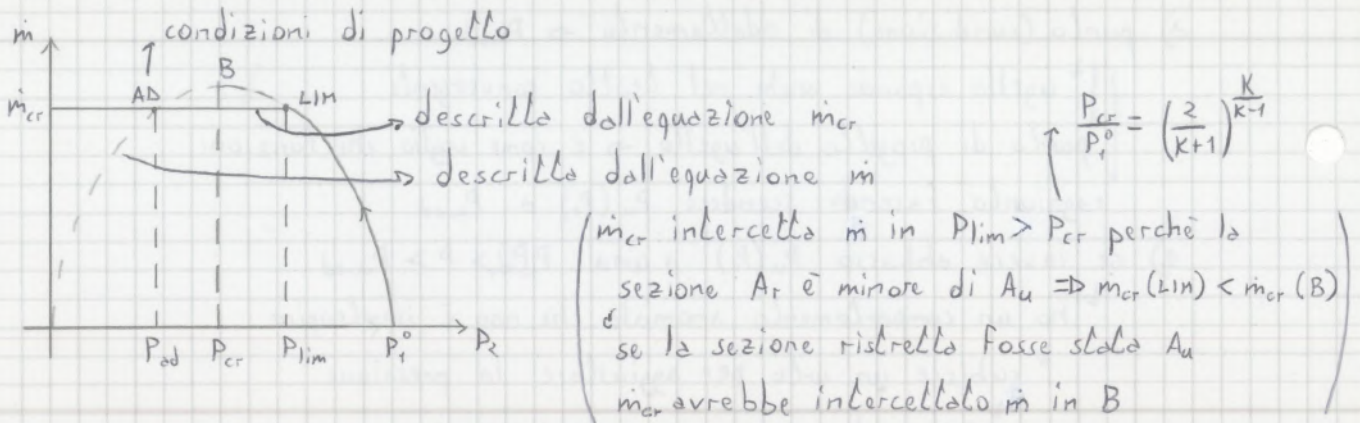 ṁ
condizioni di progetto
B
AD
LIM
ṁcr
descritta dall'equazione ṁcr
descritta dall'equazione ṁ
Pcr/P₁° = (2/(K+1))^(K/(K-1))
(ṁcr intercetta ṁ in Plim > Pcr perchè la
sezione Ar è minore di Au => ṁcr(LIM) < ṁcr(B)
se la sezione ristretta fosse stata Au
ṁcr avrebbe intercettato ṁ in B)
Pad Pcr Plim P₁° P₂